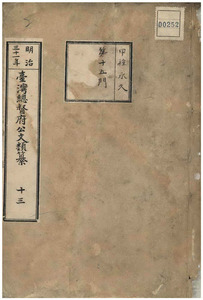 D00252
甲種永久
第十五門
明治
三十一年
臺灣總督府公文類纂
十三